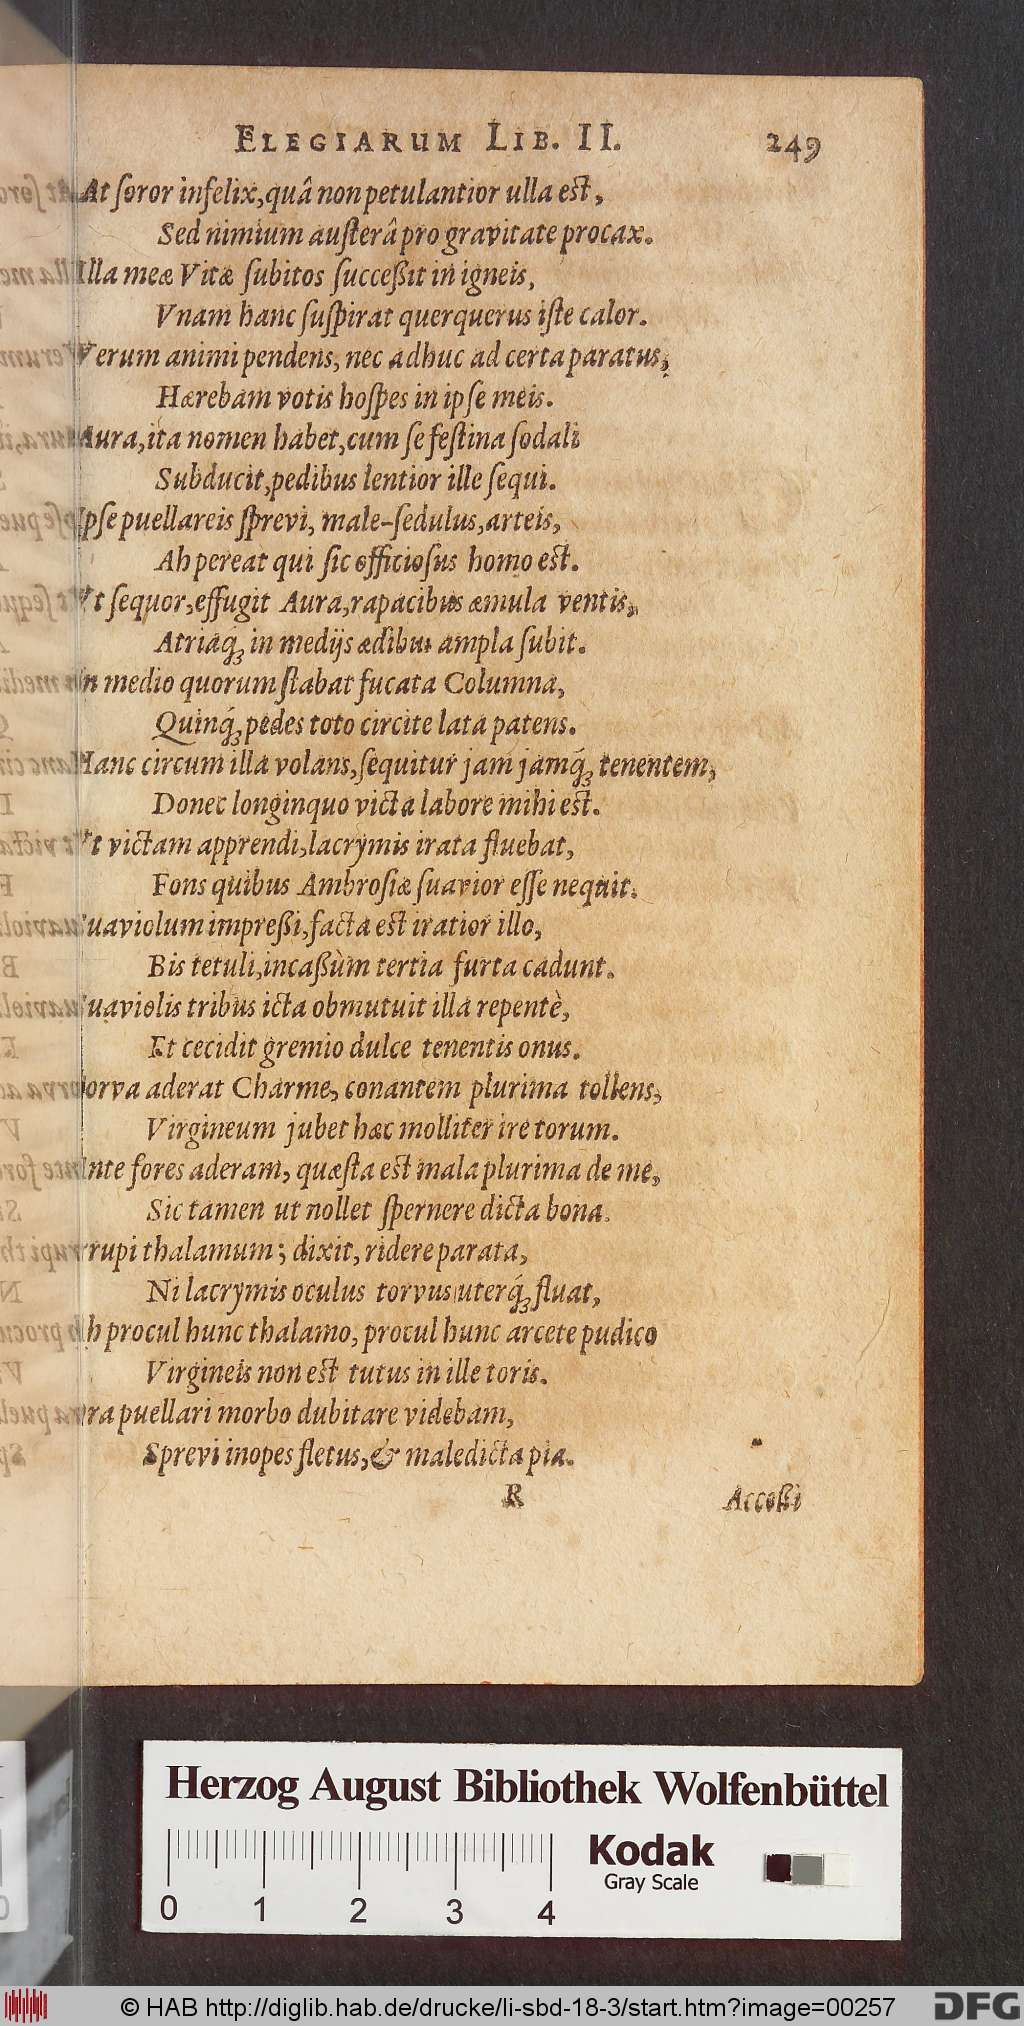 ELEGIARUM LIB. II. 249
At ſoror infelix, quâ non petulantior ulla eſt,
Sed nimium auſterâ pro gravitate procax.
Illa meæ Vitæ ſubitos ſucceßit in igneis,
Vnam hanc ſuſpirat querquerus iſte calor.
Verum animi pendens, nec adhuc ad certa paratus,
Hærebam votis hoſpes in ipſe meis.
Aura, ita nomen habet, cum ſe feſtina ſodali
Subducit, pedibus lentior ille ſequi.
Ipſe puellareis ſprevi, male-ſedulus, arteis,
Ah pereat qui ſic officioſus homo eſt.
Vt ſequor, effugit Aura, rapacibus æmula ventis,
Atriaq́; in medijs ædibus ampla ſubit.
In medio quorum ſtabat fucata Columna,
Quinq́; pedes toto circite lata patens.
Hanc circum illa volans, ſequitur jam jamq́; tenentem,
Donec longinquo victa labore mihi eſt.
Vt victam apprendi, lacrymis irata fluebat,
Fons quibus Ambroſiæ ſuavior eſſe nequit.
Suaviolum impreßi, facta eſt iratior illo,
Bis tetuli, incaßùm tertia furta cadunt.
Suaviolis tribus icta obmutuit illa repentè,
Et cecidit gremio dulce tenentis onus.
Torva aderat Charme, conantem plurima tollens,
Virgineum jubet hæc molliter ire torum.
Ante fores aderam, quæſta eſt mala plurima de me,
Sic tamen ut nollet ſpernere dicta bona.
Irrupi thalamum; dixit, ridere parata,
Ni lacrymis oculus torvus uterq́; fluat,
Ah procul hunc thalamo, procul hunc arcete pudico
Virgineis non eſt tutus in ille toris.
ra puellari morbo dubitare videbam,
Sprevi inopes fletus, & maledicta pia.
R Acceßi
Herzog August Bibliothek Wolfenbüttel
Kodak
Gray Scale
0 1 2 3 4
© HAB http://diglib.hab.de/drucke/li-sbd-18-3/start.htm?image=00257 DFG